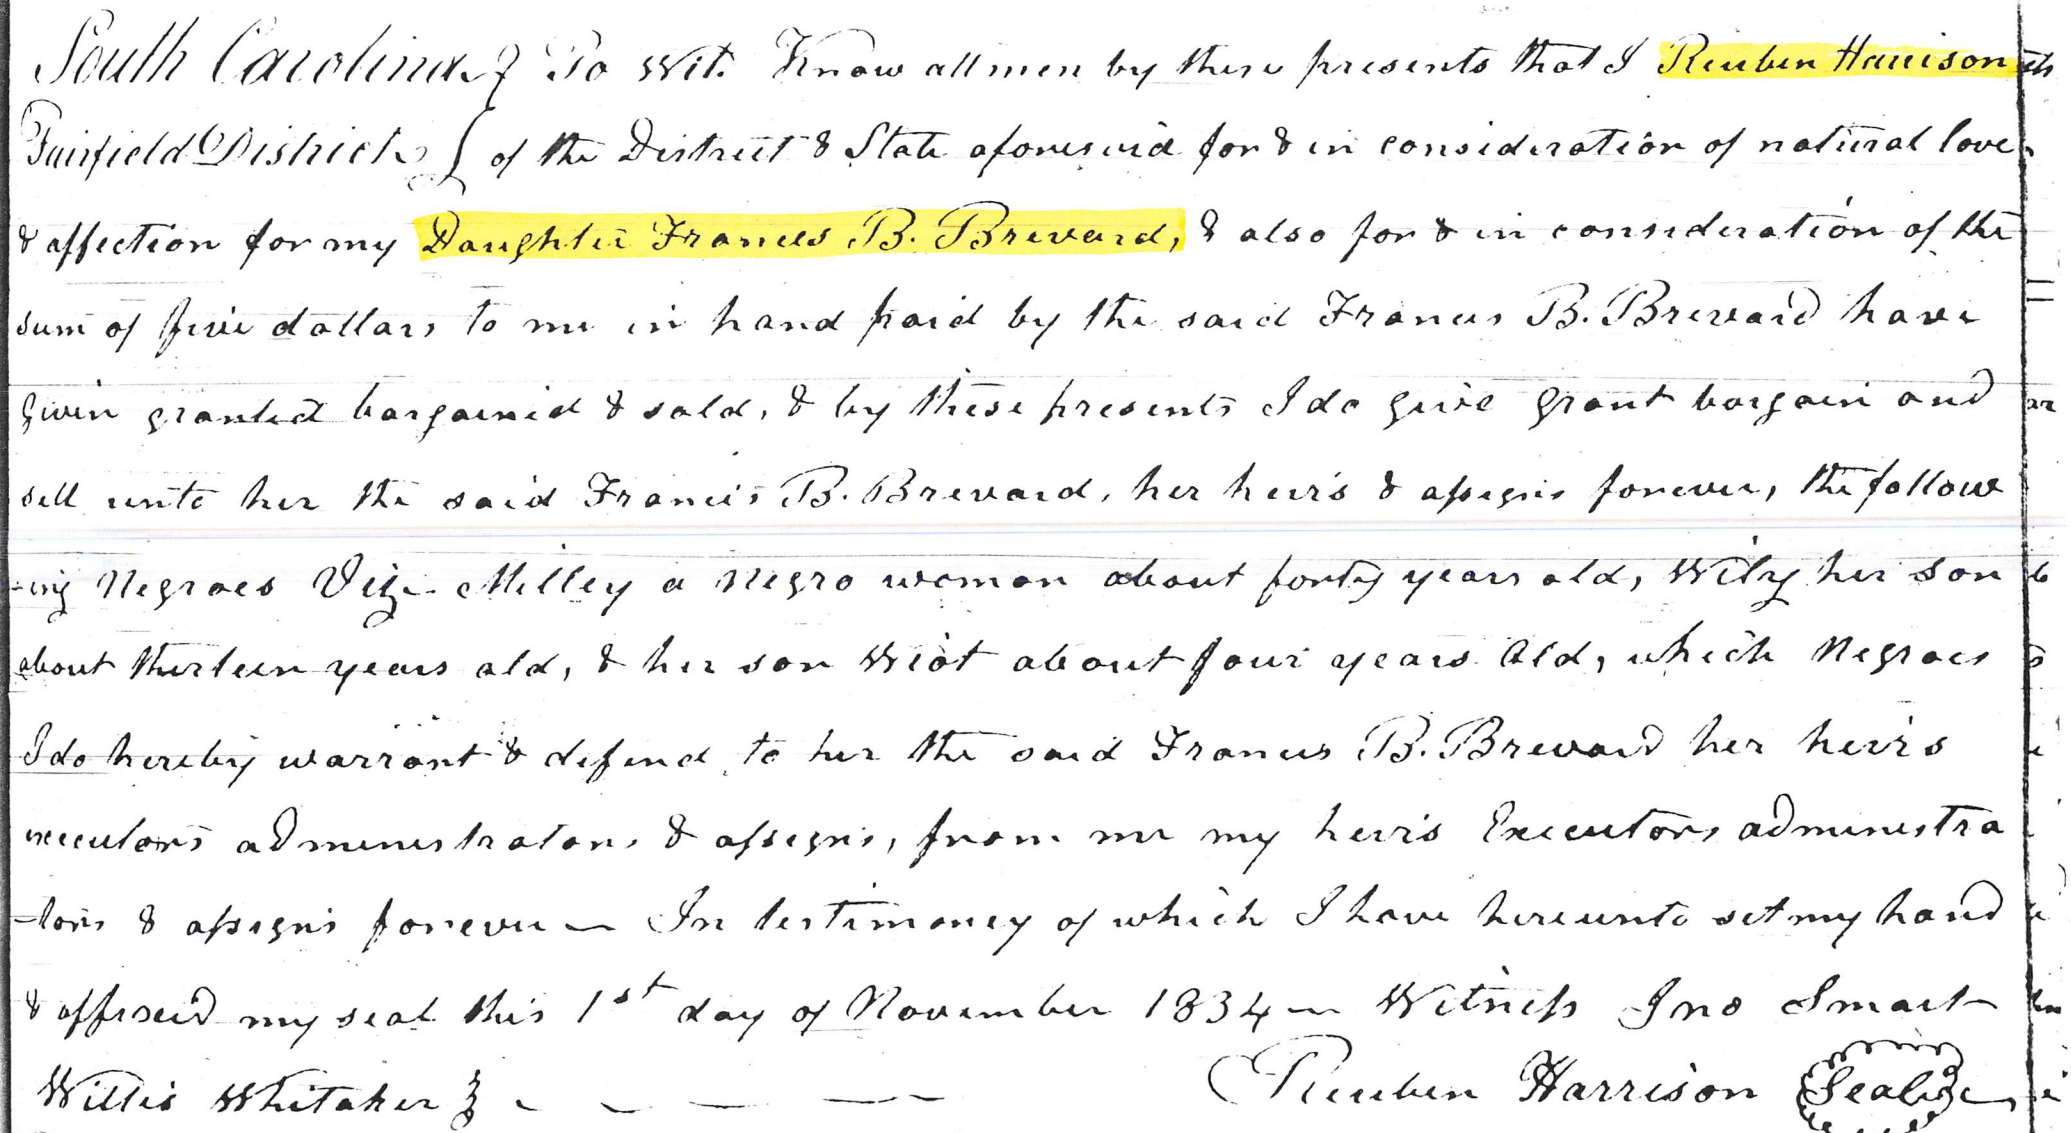 South Carolina } To Wit. Know all men by these presents that I Reuben Harrison
Fairfield District } of the District & State aforesaid for & in consideration of natural love
& affection for my Daughter Frances B. Brevard, & also for & in consideration of the
sum of five dollars to me in hand paid by the said Frances B. Brevard have
given granted bargained & sold, & by these presents I do give grant bargain and
sell unto her the said Frances B. Brevard, her heirs & assigns forever, the follow
-ing Negroes Viz. Milley a negro woman about forty years old, Wily her son
about thirteen years old, & her son Wiot about four years old, which Negroes
I do hereby warrant & defend to her the said Frances B. Brevard her heirs
executors administrators & assigns, from me my heirs Executors administra
-tors & assigns forever — In testimoney of which I have hereunto set my hand
& affixed my seal this 1st day of November 1834 — Witness Jno Smart
Willis Whitaker } - - - — Reuben Harrison (Seal)